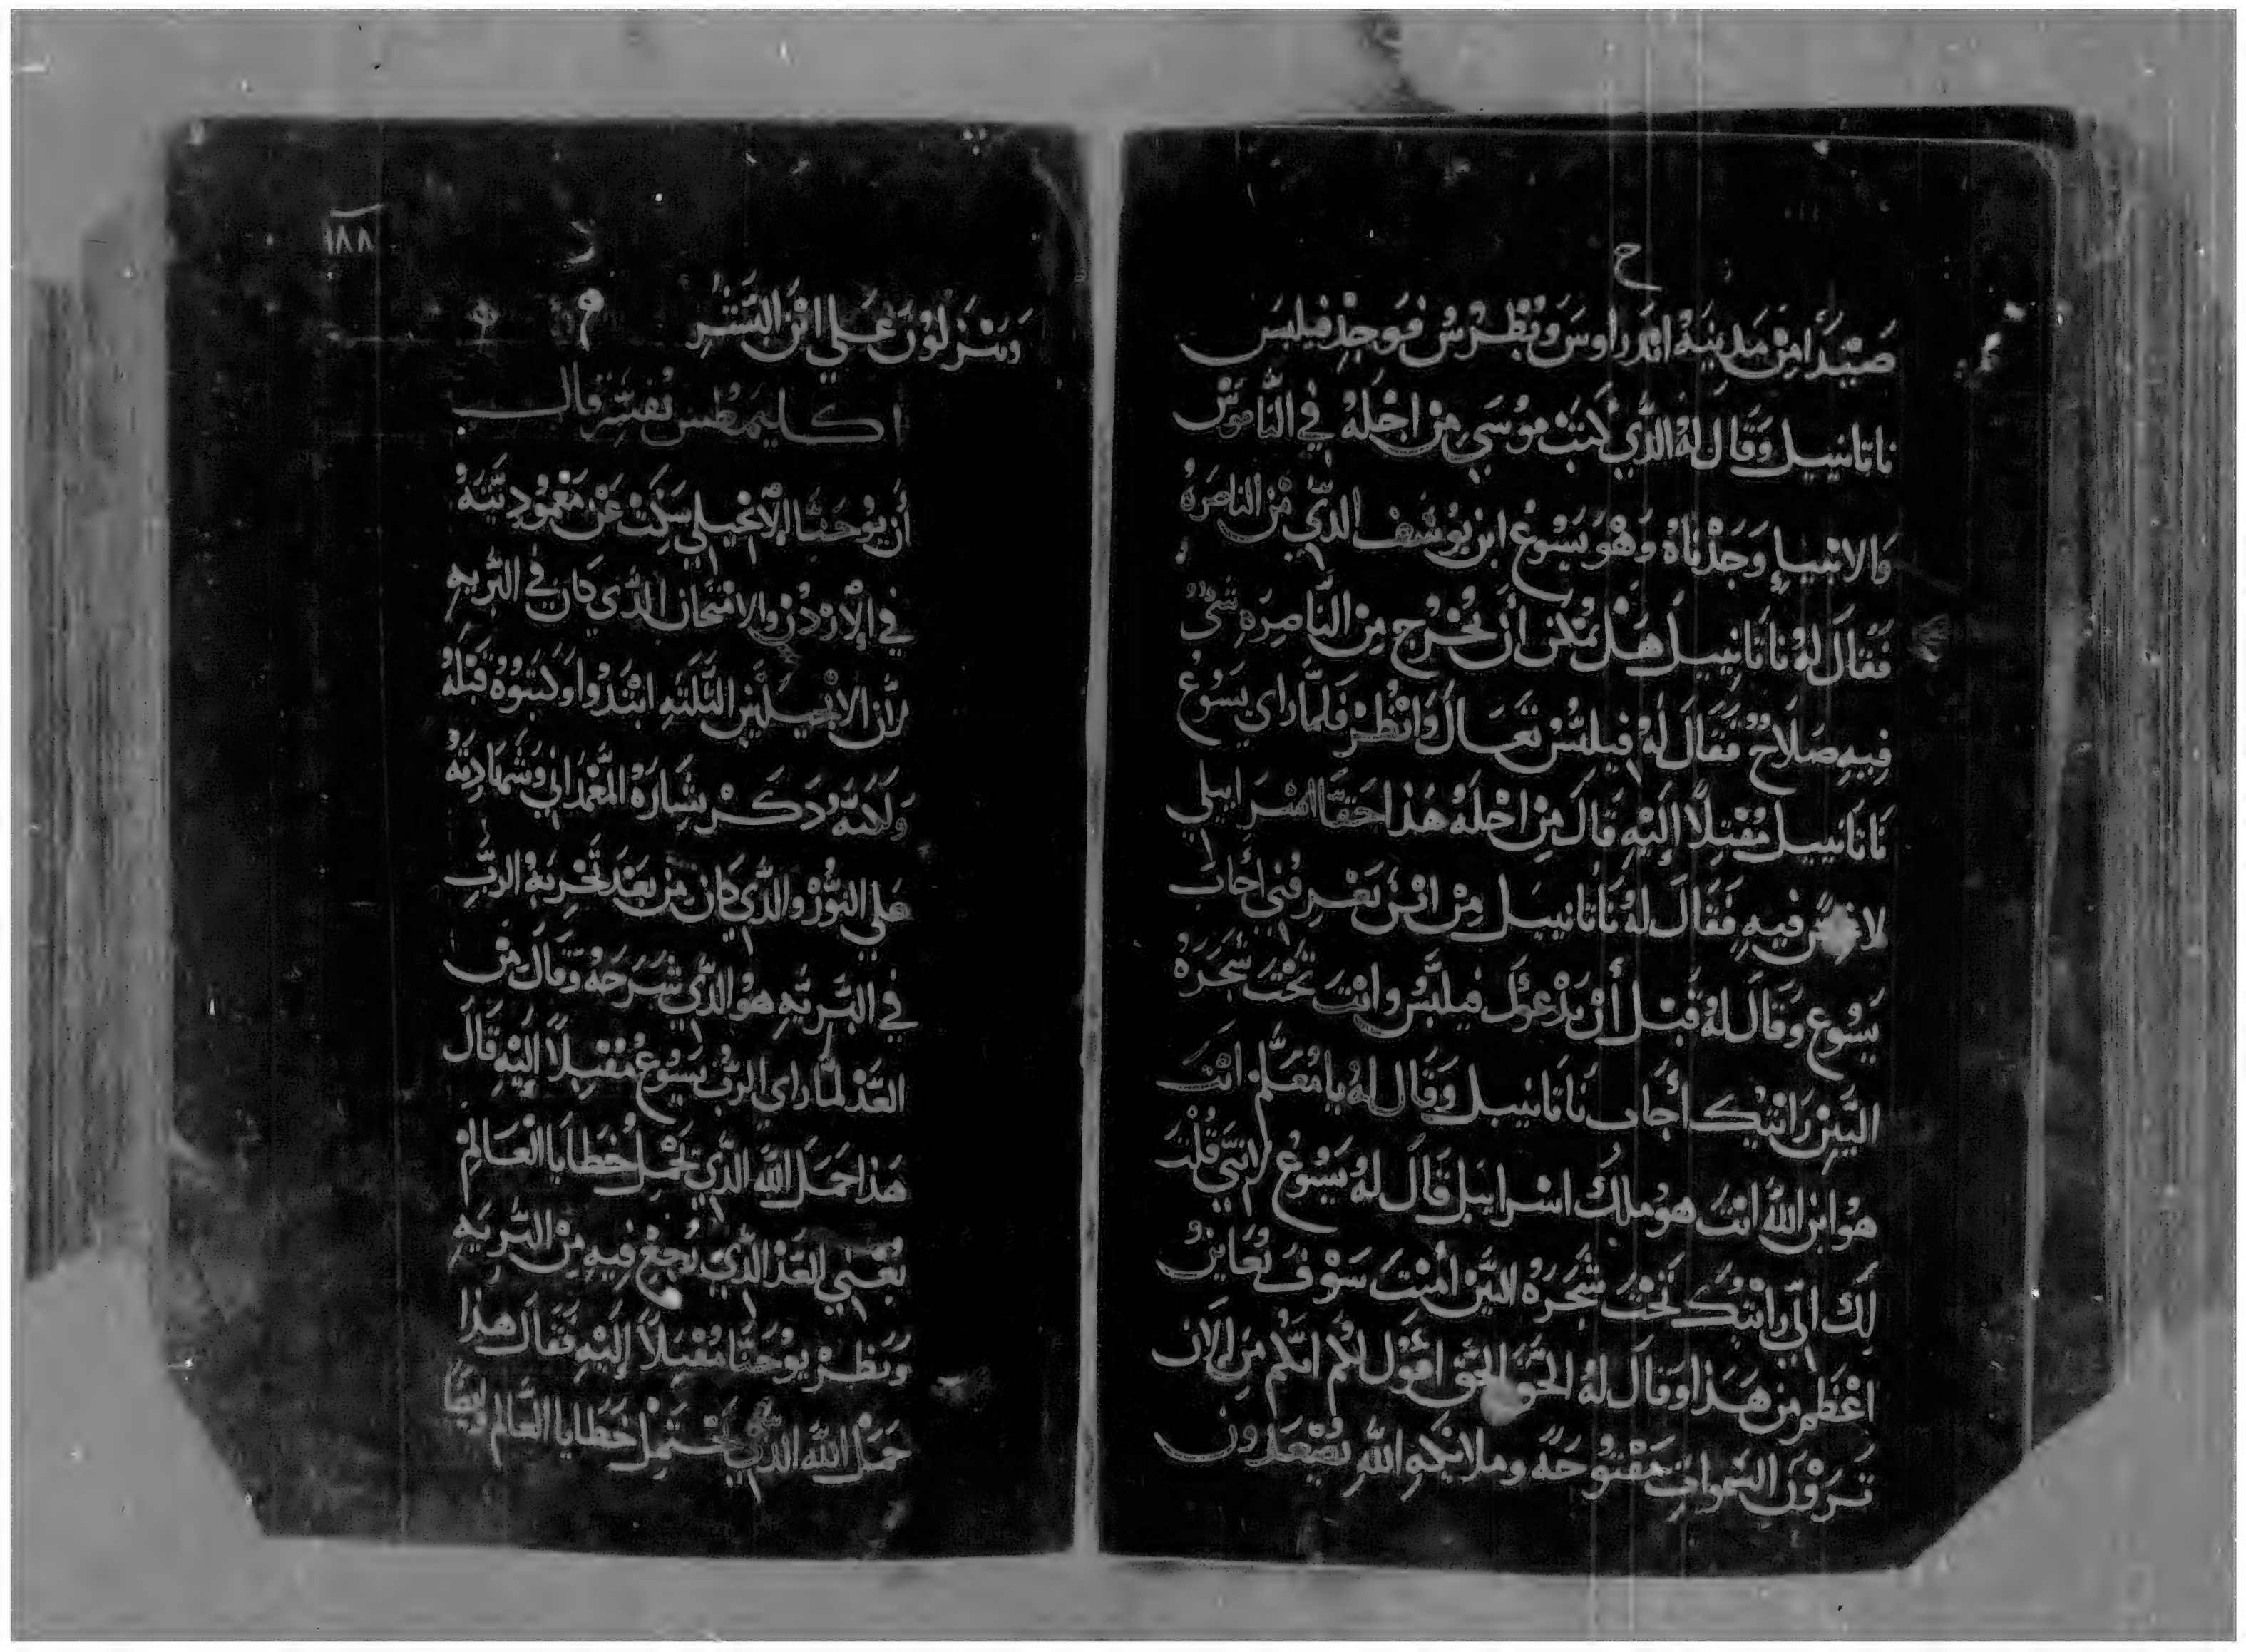 ح
صَيْدَا مِنْ مَدينة اندراوس وبُطْرُس فوجد فيلبس
ناتانييل وَقَالَ لهُ الذي كَتَبَ موُسَي مِن اجْلهُ في النَّاموُسْ
وَالانبياءِ وَجَدْنَاهُ وَهُوَ يَسُوع ابن يوسف الذي مِن الناصرهْ
فَقَالَ لهُ نَاتَانييل هَلْ يُمْكن أن يخْرُج مِن النَّاصِرَهِ شيْ
فِيهِ صَلَاحٌ فَقَالَ لهُ فيلبسْ تَعَالْ وَانْظُرْ فَلمَّا رَاي يَسُوعْ
نَاتانييل مُقْبِلًا إليْهِ قَالَ مِن اجْلهُ هَذا حَقًّا اسْرَاييلي
لا غش فيهِ فَقَالَ لهُ نَاتانييل مِنْ ايْنَ تَعْرِفُني أجَابَ
يَسُوع وَقَالَ لهُ قَبْلَ أنْ يَدْعوُكَ فيلبسْ وانْتَ تَحْتَ شَجَرَهْ
التِّينِ رَايْتُكَ أجَابَ نَاتَانييل وَقَالَ لهُ يا مُعَلِّم انتَ
هو ابن اللَّه انْتَ هو ملِك اسْراييل قَالَ لهُ يَسُوعْ لانِّي قُلْتَ
لكَ اني رَايْتُكَ تَحْتَ شَجَرَهْ التِّينْ أمَنْتَ سَوْفَ تُعَاينْ
اعْظَم مِن هَذا وَقَالَ لهُ الحَقَّ الحَقَّ اقُول لكُم انّكُم مِنَ الانَ
تَرَوْنَ السَّمَواتِ مَفْتوُحَهْ وملايكهِ اللَّهِ يَصْعَدُونَ
١٨٨
وَينزلوُنَ عَلي ابْن البَشَرْ
اكليمَنطس يُفسِّر قال
أن يوُحَنَّا الإنْجيلي سَكَتَ عَن مَعْمُودِيَّتهْ
في الأرْدُنْ والامْتحَان الذي كَانَ في البَرِّيهِ
لأن الانجيليين الثَّلثهِ ابْتَدُوا وَكَتَبوُهْ قَبْلهُ
وَلكنَّهْ ذكَرْ بشَارَهْ المَعْمَدَاني وَشَهَادتهْ
عَلي النُّورْ والذي كَانَ مِن بَعْدَ تَجْربهْ الرَّب
في البَرِّيهِ هو الذي شَرَحَهْ وَقَالَ مِن
الغَدْ لمَّا رَاي الرَّبْ يَسُوعْ مُقْبِلًا إليْهِ قَالَ
هَذا حَمَلَ اللَّه الذي يَحْمِلْ خطَايا العَالمْ
يَعْني الغَدْ الذي رَجعْ فيهِ مِن البَرِّيهِ
وَنَظَرْ يوُحَنَّا مُقْبِلًا إليْهِ فَقَالَ هَذا
حَمَلْ اللَّه الذي يَحْتَمِلْ خَطَايا العَالم وَايضًا